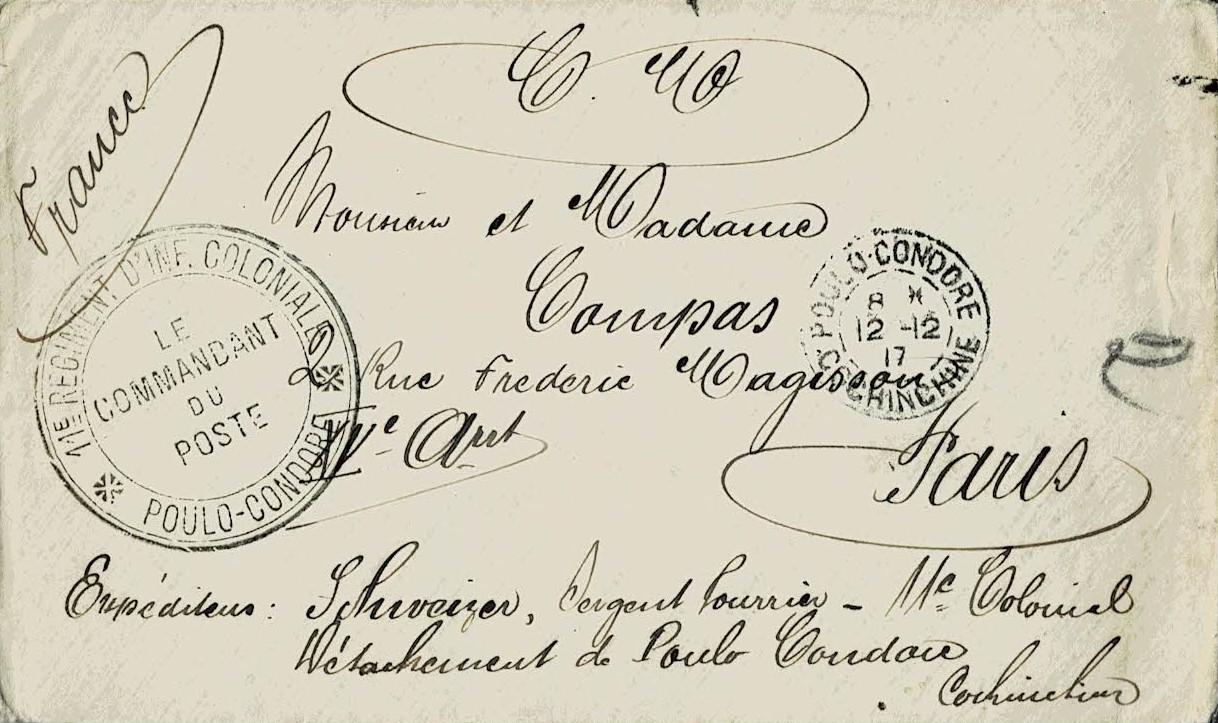 France
C. M
Monsieur et Madame
Compas
2 Rue Frederic Magisson
XVe Arrt
Paris
11E REGIMENT D'INF. COLONIALE
LE
COMMANDANT
DU
POSTE
POULO-CONDORE
POULO-CONDORE
8
12 -12
17
COCHINCHINE
Expéditeur: Schweizer, Sergent fourrier - 11e Colonial
Détachement de Poulo Condore
Cochinchine